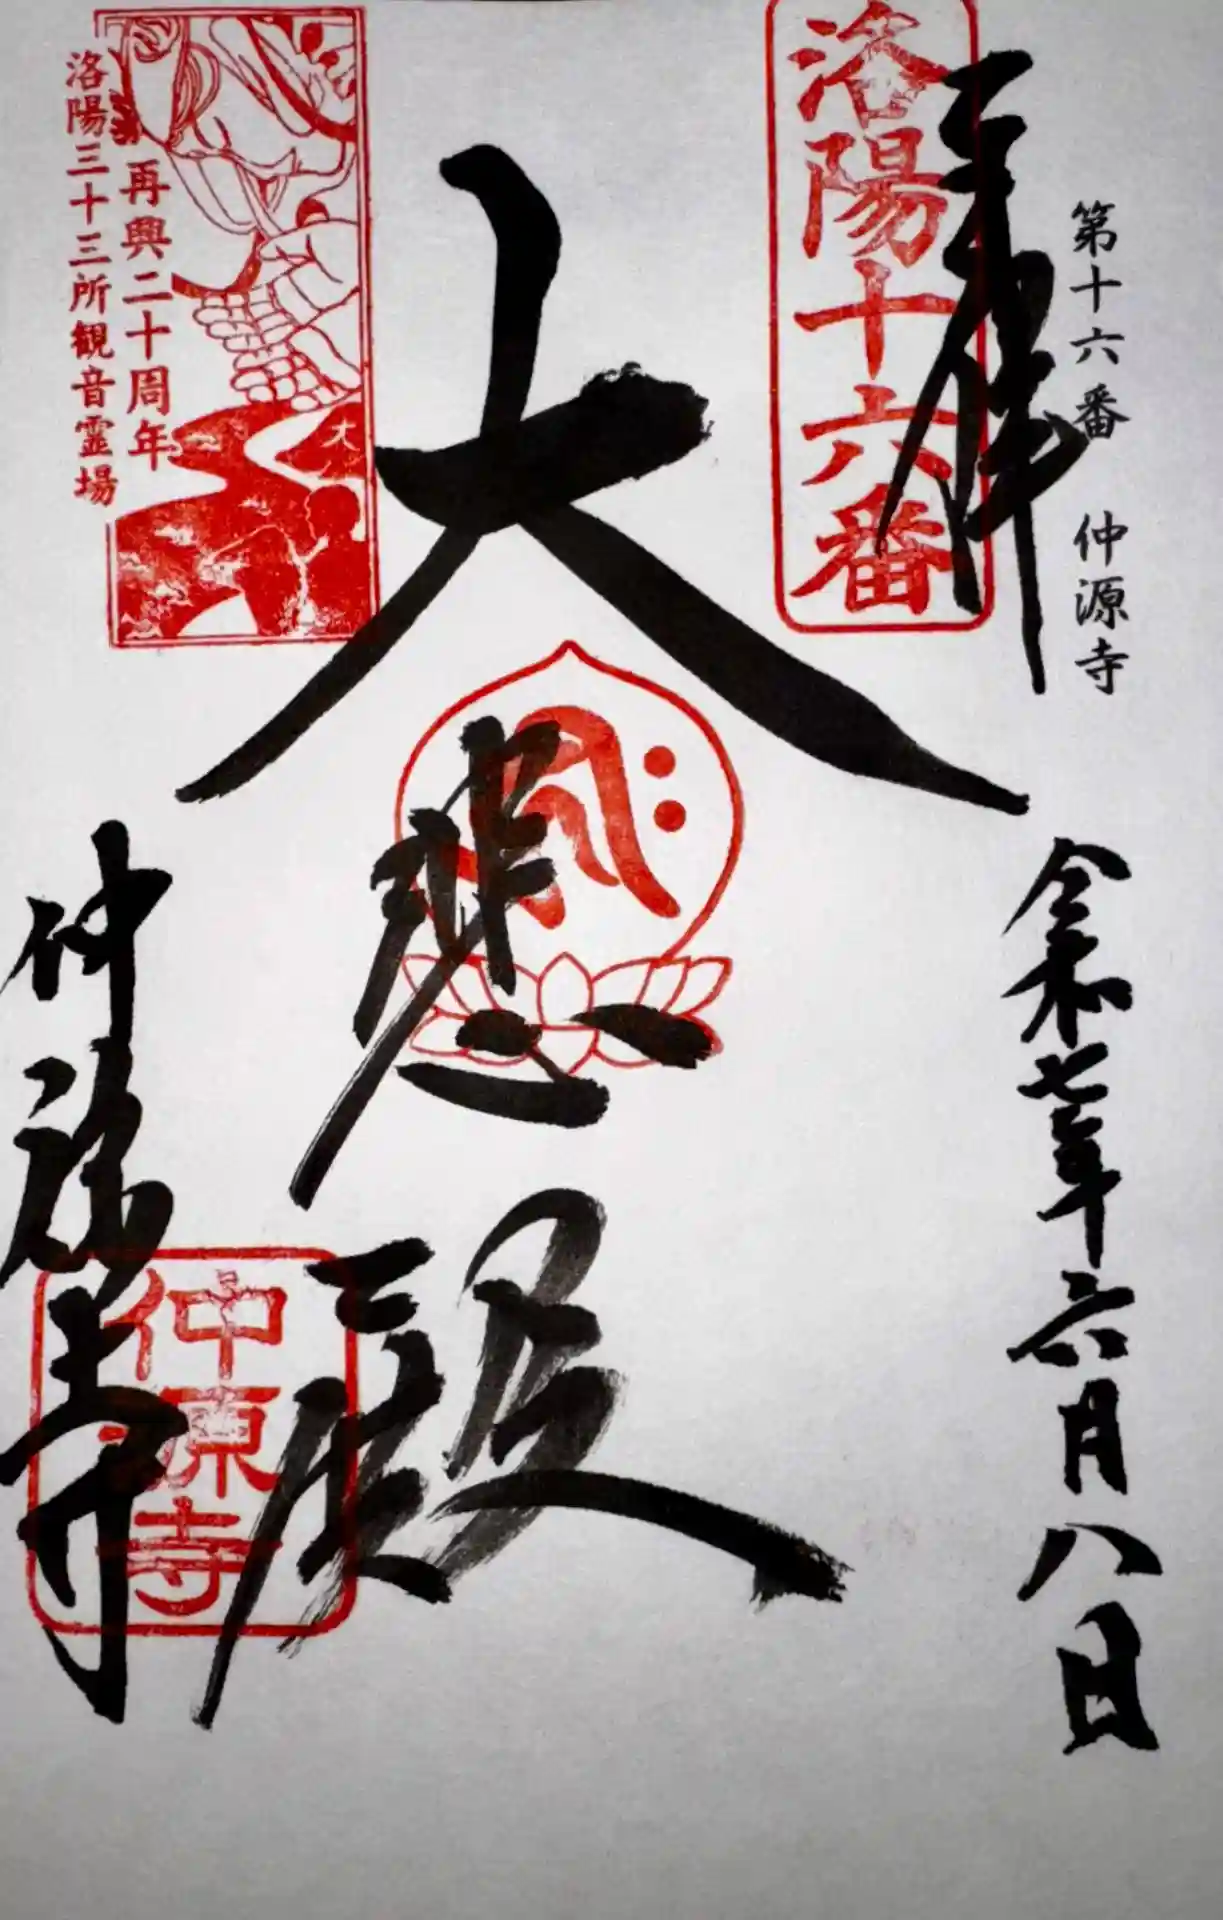 第十六番　仲源寺
奉拝
令和七年六月八日
洛陽十六番
大悲殿
再興二十周年
洛陽三十三所観音霊場
大
仲源寺
仲源寺